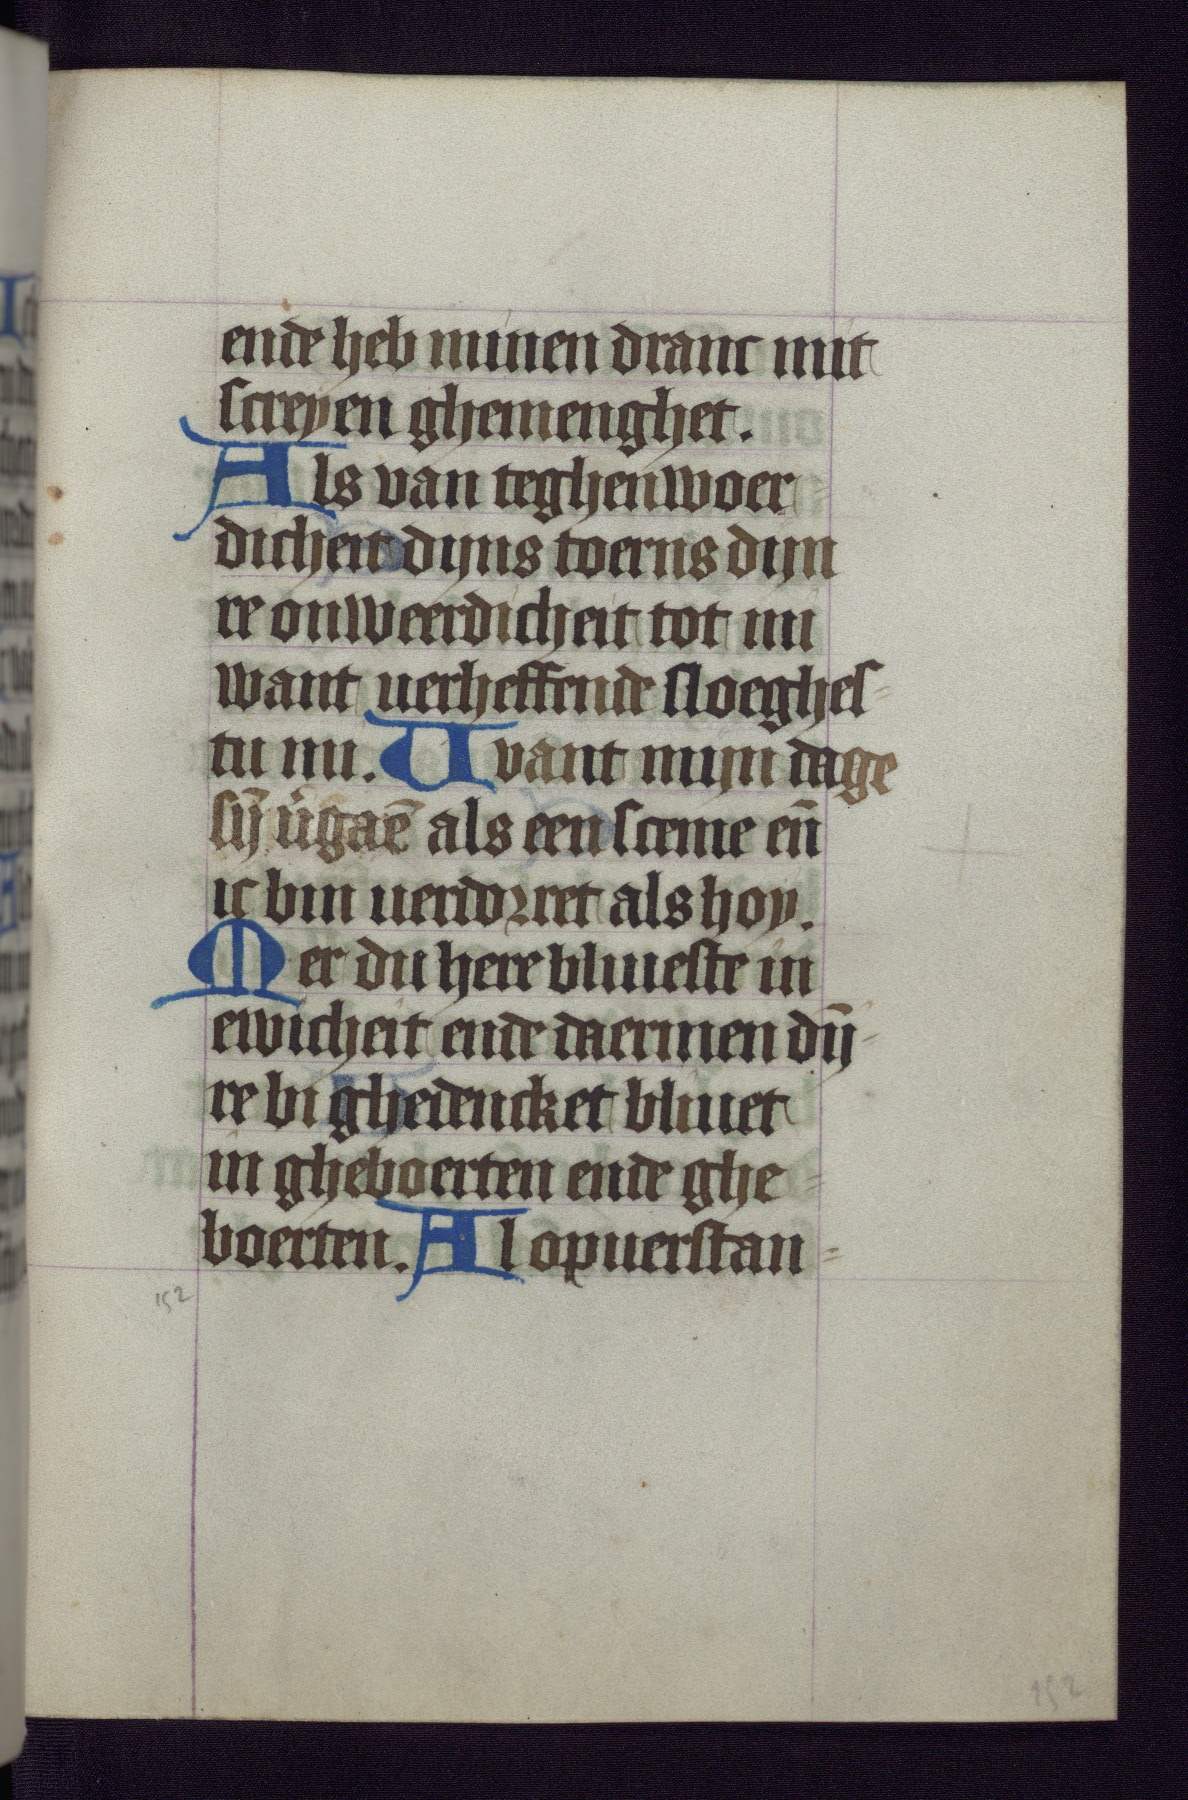 ende heb minen dranc mit
screyen ghemenghet.
Als van teghenwoer
dicheit dijns toerns dijn
re onweerdicheit tot mi
want uerheffende sloeghes
tu mi. Uvant mijn dage
sij̄ v̉gaē als een sceme en̄
ic bin uerdorret als hoy.
Mer du here bliueste in
ewicheit ende daermen dij̄
re bi ghedencket bliuet
in gheboerten ende ghe
boerten. Al opuerstan
152
152